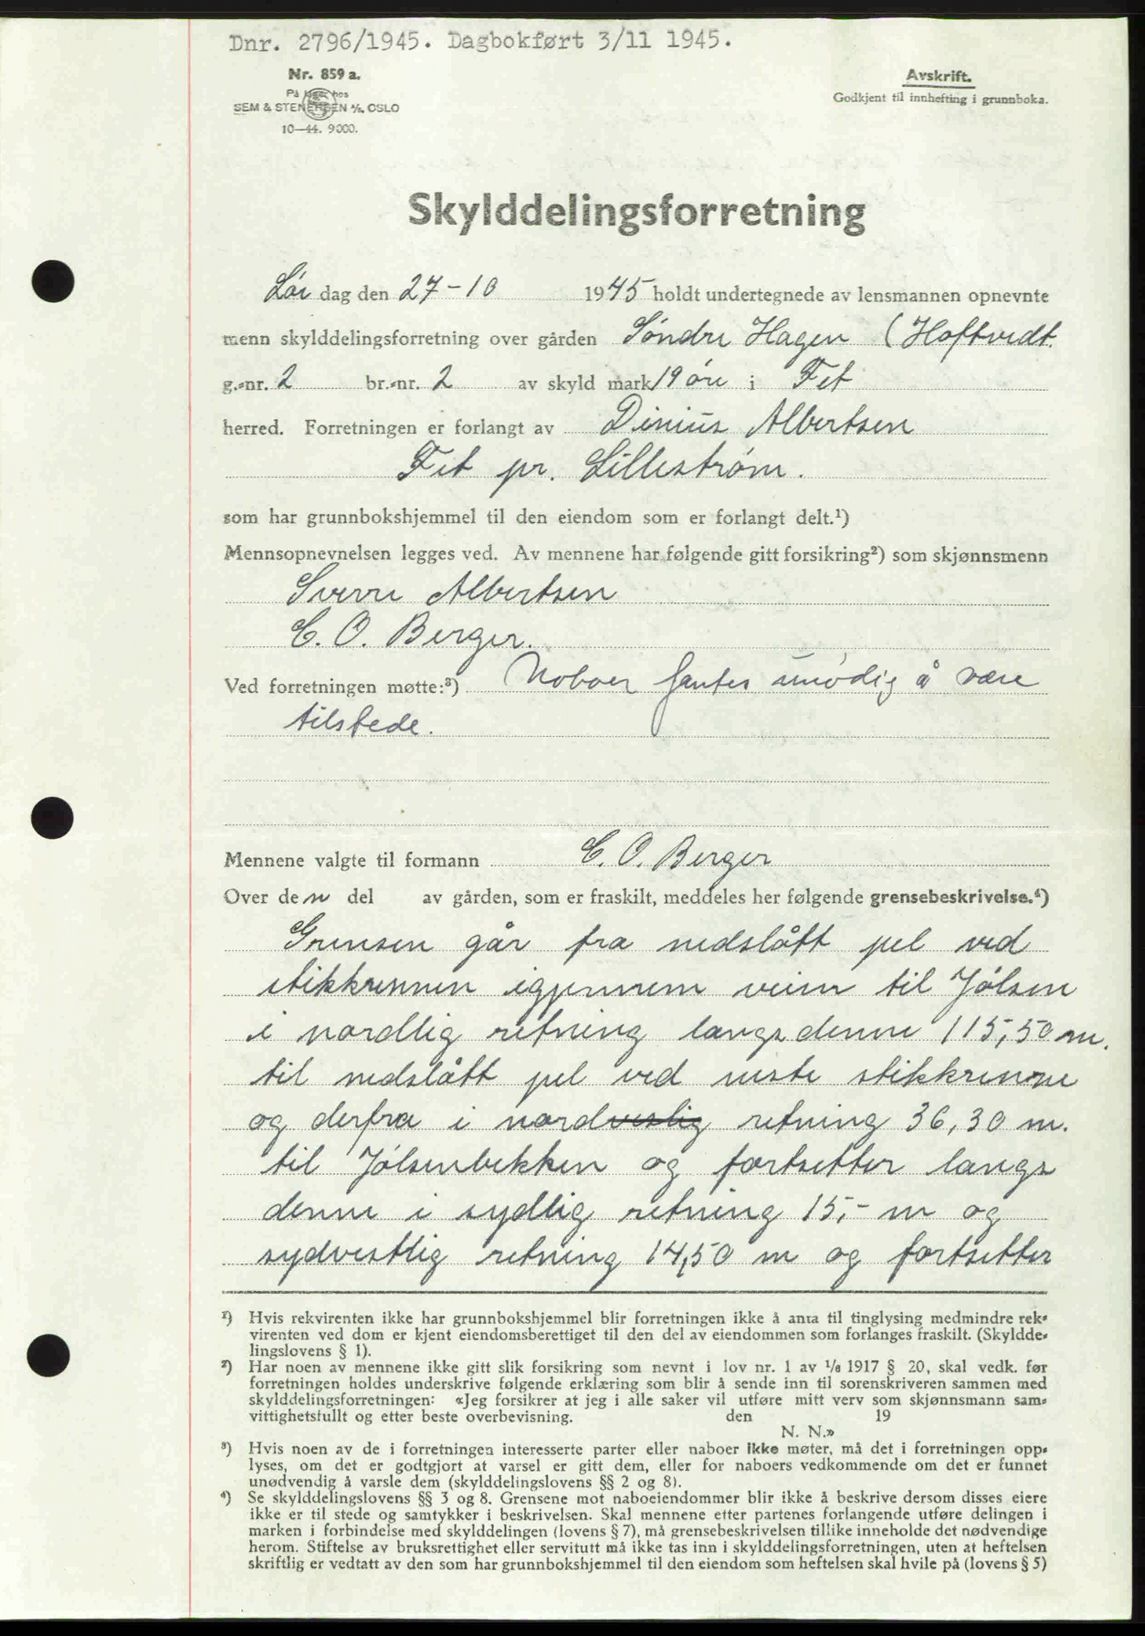 Dnr. 2796/1945. Dagbokført 3/11 1945.
Nr. 859 a.
På lager hos
SEM & STENERSEN A/S. OSLO
10—44. 9000.
Avskrift.
Godkjent til innhefting i grunnboka.
Skylddelingsforretning
Lør dag den 27-10 1945 holdt undertegnede av lensmannen opnevnte
menn skylddelingsforretning over gården Søndre Hagen (Hoftvedt.
g.-nr. 2 br.-nr. 2 av skyld mark 19 øre i Fet
herred. Forretningen er forlangt av Dinius Albertsen
Fet pr. Lillestrøm.
som har grunnbokshjemmel til den eiendom som er forlangt delt.¹)
Mennsopnevnelsen legges ved. Av mennene har følgende gitt forsikring²) som skjønnsmenn
Sverre Albertsen
C. O. Berger.
Ved forretningen møtte:³) Naboer fantes unødig å være
tilstede.
Mennene valgte til formann C. O. Berger
Over den del av gården, som er fraskilt, meddeles her følgende grensebeskrivelse.⁴)
Grensen går fra nedslått pel ved
stikkrennen igjennem veien til Jølsen
i nordlig retning langs denne 115,50 m.
til nedslått pel ved neste stikkrenne
og derfra i nordvestlig retning 36,30 m.
til Jølsenbekken og fortsetter langs
denne i sydlig retning 15,- m og
sydvestlig retning 14,50 m og fortsetter
¹) Hvis rekvirenten ikke har grunnbokshjemmel blir forretningen ikke å anta til tinglysing medmindre rek-
virenten ved dom er kjent eiendomsberettiget til den del av eiendommen som forlanges fraskilt. (Skyldde-
lingslovens § 1).
²) Har noen av mennene ikke gitt slik forsikring som nevnt i lov nr. 1 av 1/6 1917 § 20, skal vedk. før
forretningen holdes underskrive følgende erklæring som blir å sende inn til sorenskriveren sammen med
skylddelingsforretningen: «Jeg forsikrer at jeg i alle saker vil utføre mitt verv som skjønnsmann sam-
vittighetsfullt og etter beste overbevisning. den 19
N. N.»
³) Hvis noen av de i forretningen interesserte parter eller naboer ikke møter, må det i forretningen opp-
lyses, om det er godtgjort at varsel er gitt dem, eller for naboers vedkommende om det er funnet
unødvendig å varsle dem (skylddelingslovens §§ 2 og 8).
⁴) Se skylddelingslovens §§ 3 og 8. Grensene mot naboeiendommer blir ikke å beskrive dersom disses eiere
ikke er til stede og samtykker i beskrivelsen. Skal mennene etter partenes forlangende utføre delingen i
marken i forbindelse med skylddelingen (lovens § 7), må grensebeskrivelsen tillike inneholde det nødvendige
herom. Stiftelse av bruksrettighet eller servitutt må ikke tas inn i skylddelingsforretningen, uten at heftelsen
skriftlig er vedtatt av den som har grunnbokshjemmel til den eiendom som heftelsen skal hvile på (lovens § 5)